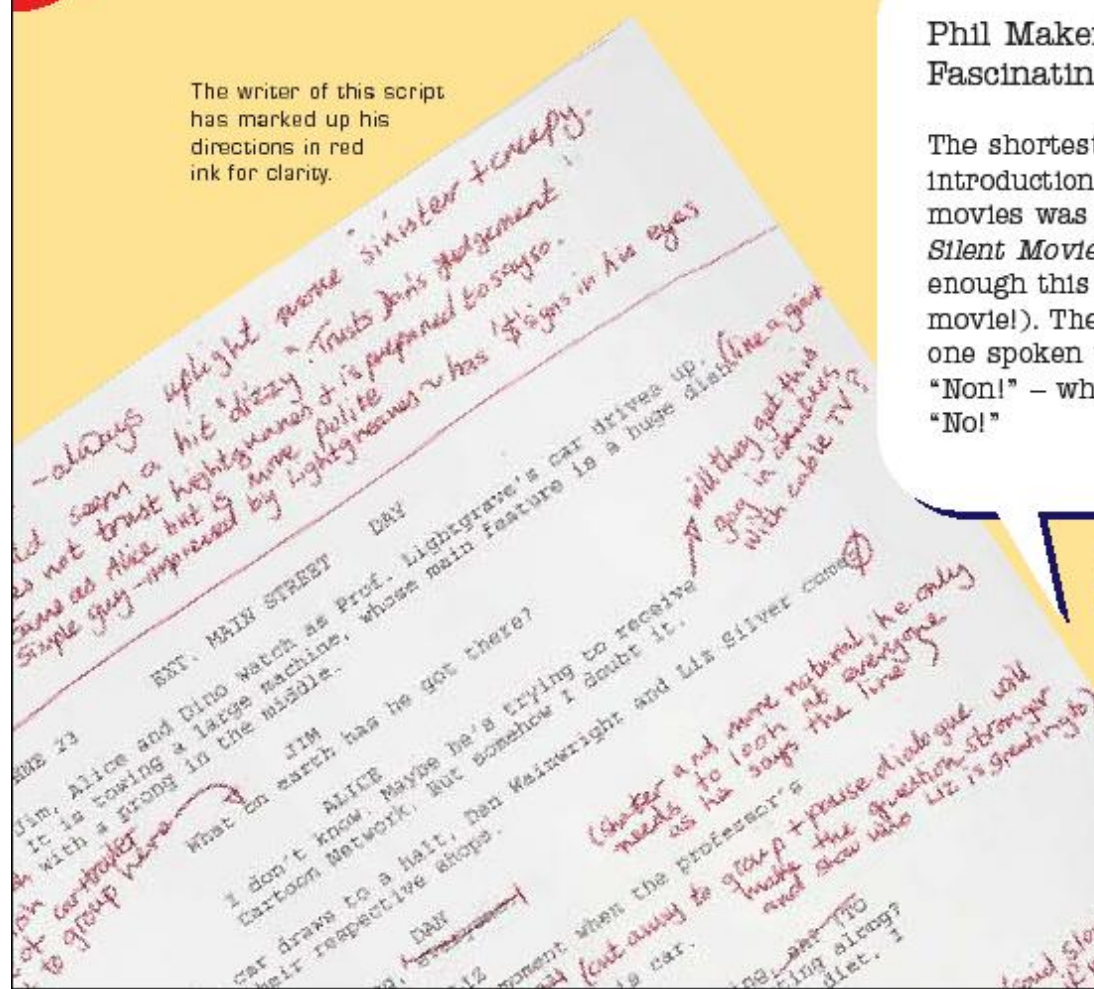 The writer of this script
has marked up his
directions in red
ink for clarity.
Phil Maker
Fascinatin
The shortest
introduction
movies was
Silent Movie
enough this
movie!). The
one spoken
"Non!" – wh
"No!"
-always uplight more sinister + creepy.
seem a bit "dizzy". Trusts Dan's judgement
not trust lightgraves + is prepared to say so.
same as Alice but is more polite
Simple guy - impressed by Lightgraves ~ has '$' signs in his eyes
EXT. MAIN STREET DAY
Jim, Alice and Dino watch as Prof. Lightgrave's car drives up.
It is towing a large machine, whose main feature is a huge dish (like a giant
with a prong in the middle.
car+trailer
to group here
JIM
What on earth has he got there?
ALICE
I don't know. Maybe he's trying to receive
Cartoon Network. But somehow I doubt it.
will they get this
gag in countries
with cable TV?
car draws to a halt. Dan Wainwright and Liz Silver come
their respective shops.
DAN
(shorter and more natural, he only
needs to look at everyone
as he says the line)
moment when the professor's
his car.
(cut away to group + pause dialogue will
make the question stronger
and show who Liz is greeting)
ting along?
diet. I